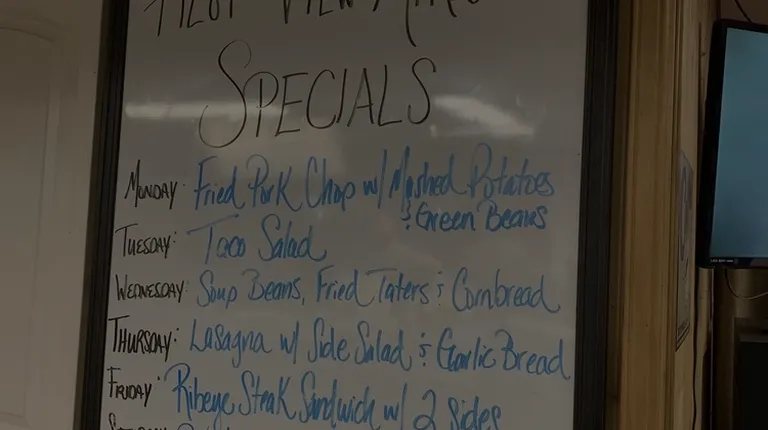 PILOT VIEW
SPECIALS
MONDAY: Fried Pork Chop w/ Mashed Potatoes
& Green Beans
TUESDAY: Taco Salad
WEDNESDAY: Soup Beans, Fried Taters & Cornbread
THURSDAY: Lasagna w/ Side Salad & Garlic Bread
FRIDAY: Ribeye Steak Sandwich w/ 2 Sides